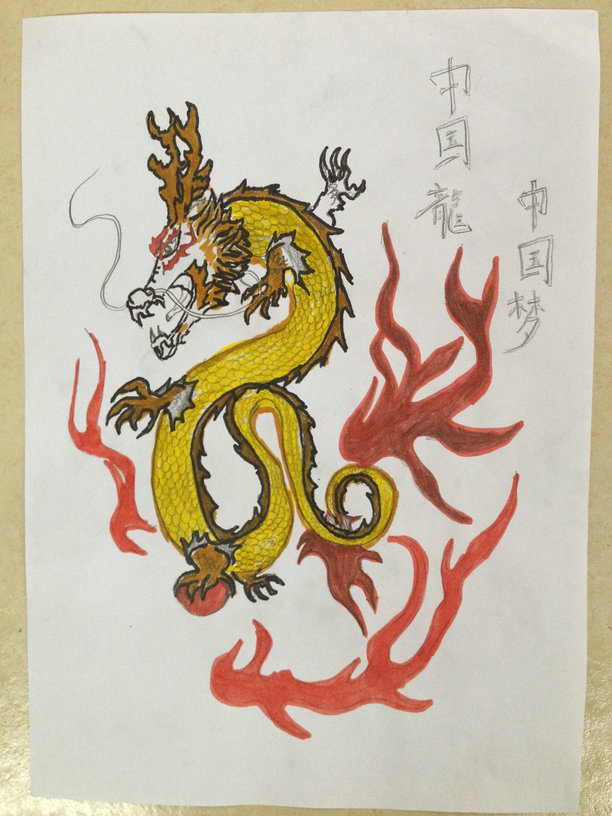 中国龍
中国梦